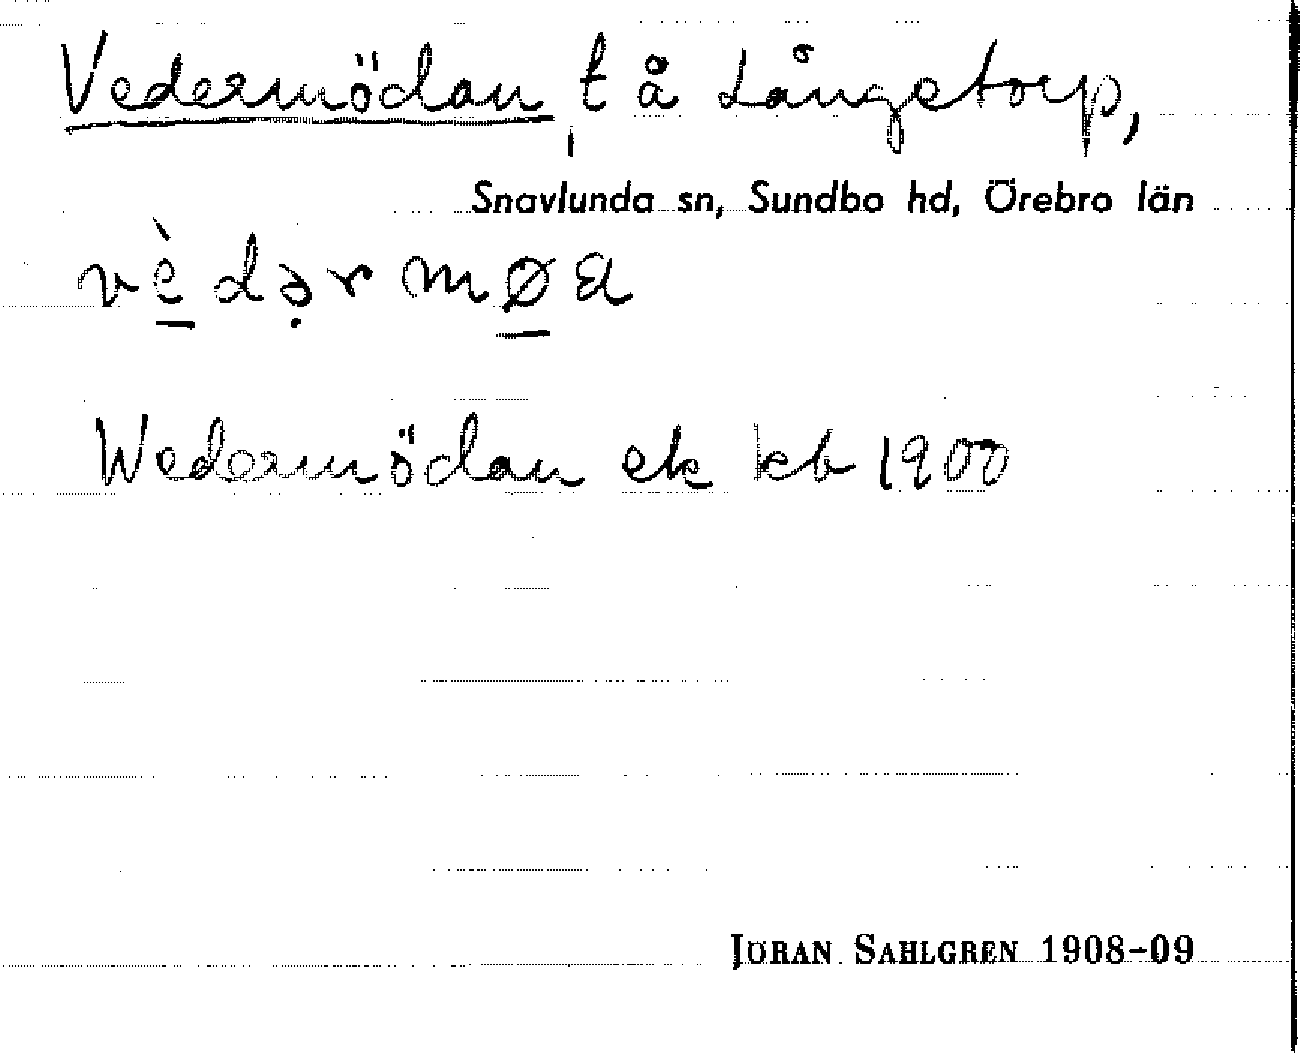 Vedermödan, t å Långetorp,
Snavlunda sn, Sundbo hd, Örebro län
vèdərmøa
Wedermödan ek kb 1900
JÖRAN SAHLGREN 1908-09